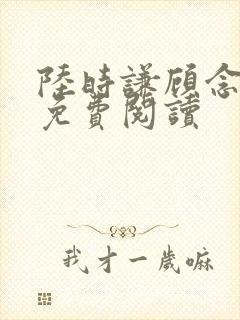 陸時謙顾念
免費閱讀
我才一歲嘛